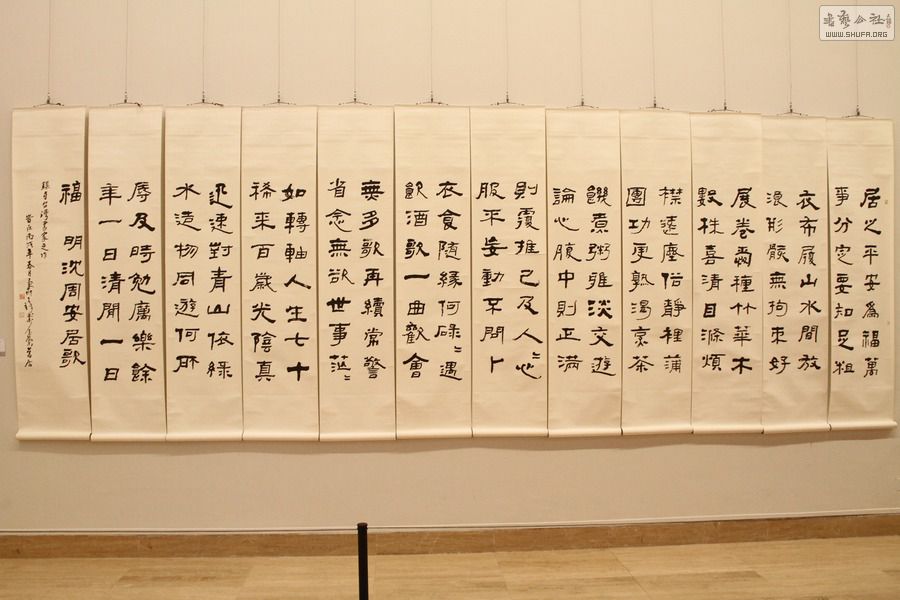 書藝公社
WWW.SHUFA.ORG
居之平安為福萬
事分定要知足粗
衣布履山水間放
浪形骸無拘束好
展卷種竹華木
數株喜清目滌煩
襟遠塵俗靜裡蒲
團功更熟渴烹茶
饑煮粥雖淡交遊
論心腹中則正滿
則覆推己及人〻心
服平安動不問卜
衣食隨緣何碌〻遇
飲酒歌一曲歡會
無多歌再續常警
省念無欲世事茫〻
如轉軸人生七十
稀來百歲光陰真
迅速對青山依綠
水造物同遊何
辱及時勉厲樂餘
年一日清閒一日
福 明沈周安居歌
丙戌年春月